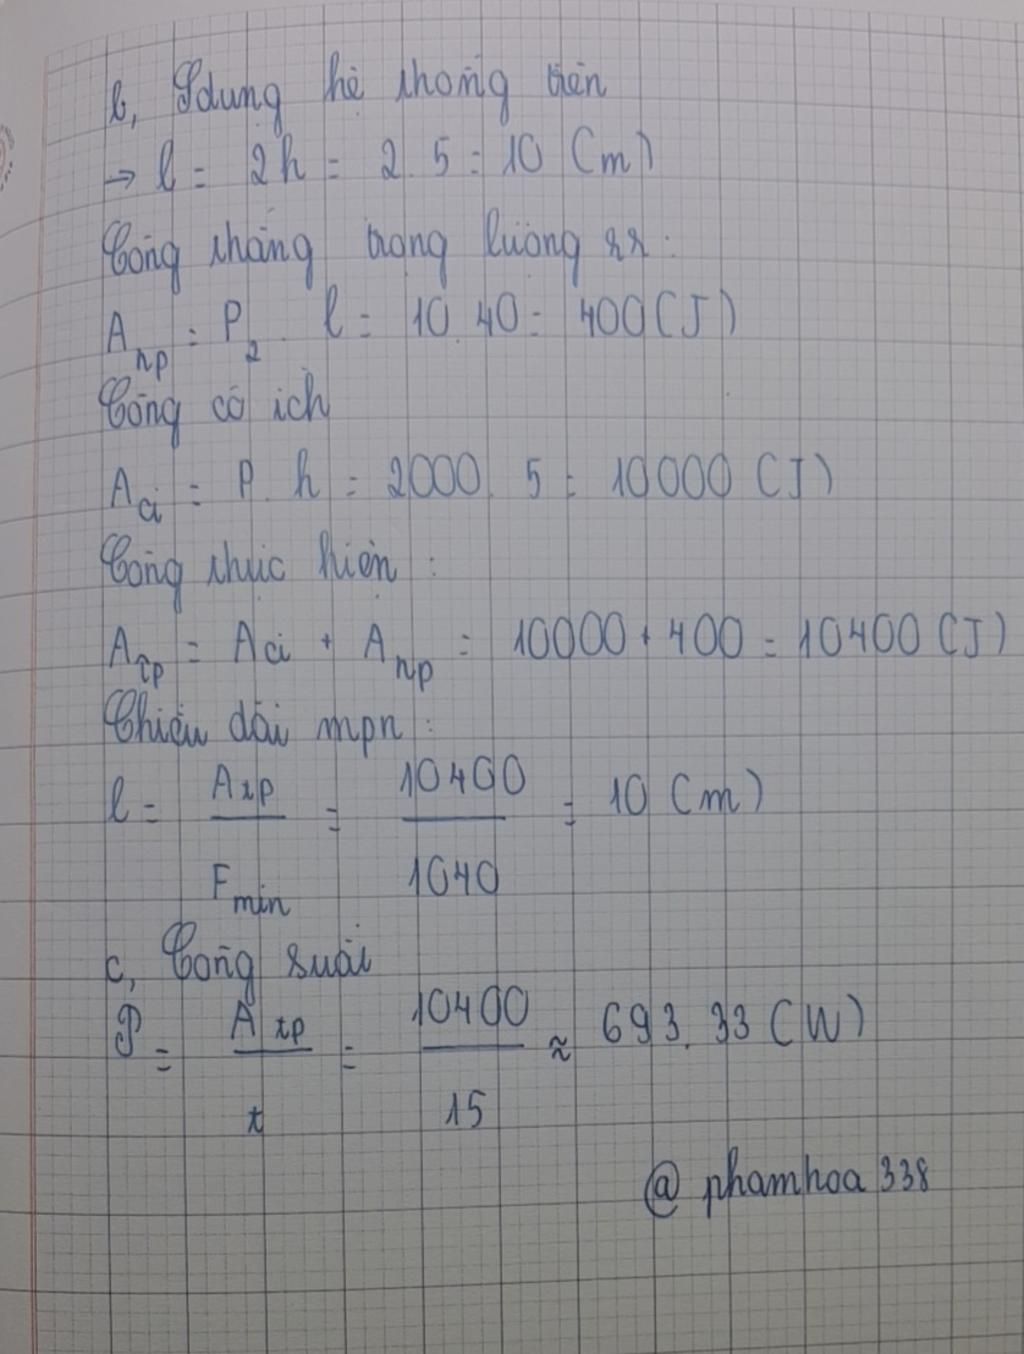 b, Sdụng hệ thống trên
→ l = 2h = 2.5 = 10 (m)
Công thắng trọng lượng rr:
A_hp = P_2 . l = 10.40 = 400 (J)
Công có ích
A_ci = P.h = 2000.5 = 10000 (J)
Công thực hiện:
A_tp = A_ci + A_hp = 10000 + 400 = 10400 (J)
Chiều dài mpn:
l = A_tp / F_min = 10400 / 1040 = 10 (m)
c, Công suất
P = A_tp / t = 10400 / 15 ≈ 693.33 (W)
@ phamhoa 338